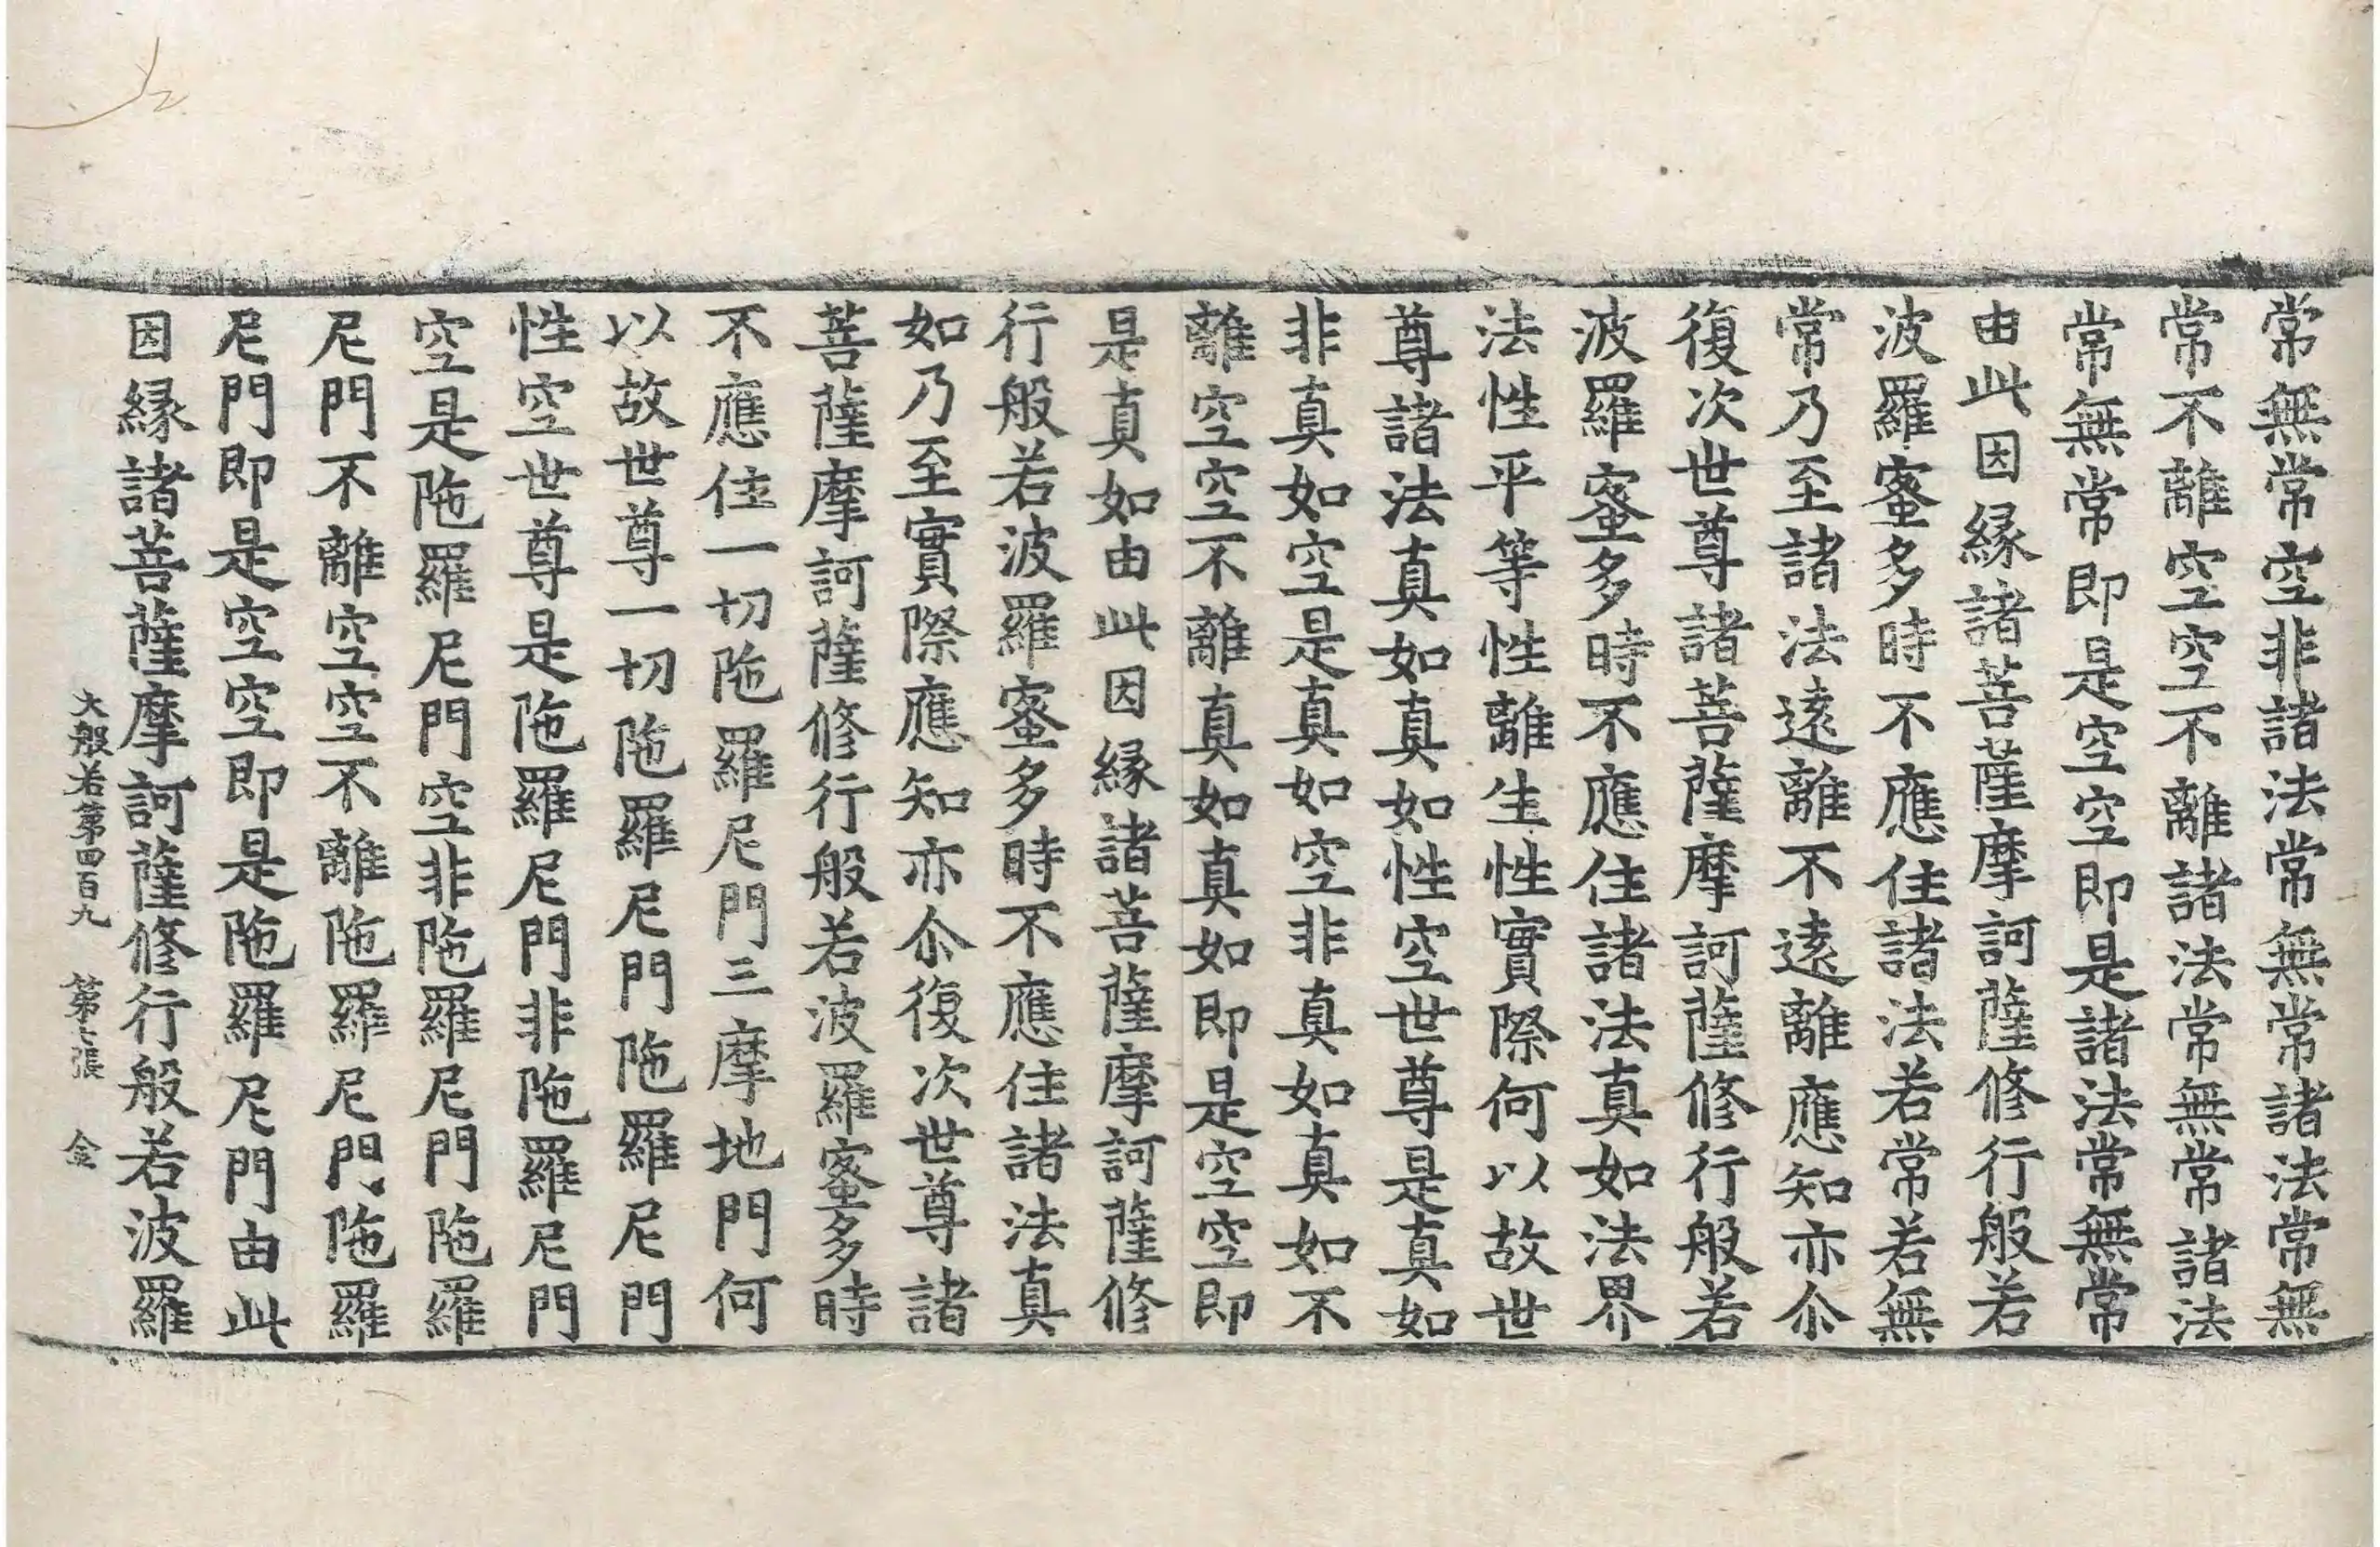 常無常空非諸法常無常諸法常無
常不離空空不離諸法常無常諸法
常無常即是空空即是諸法常無常
由此因縁諸菩薩摩訶薩修行般若
波羅蜜多時不應住諸法若常若無
常乃至諸法遠離不遠離應知亦尒
復次世尊諸菩薩摩訶薩修行般若
波羅蜜多時不應住諸法真如法界
法性平等性離生性實際何以故世
尊諸法真如真如性空世尊是真如
非真如空是真如空非真如真如不
離空空不離真如真如即是空空即
是真如由此因縁諸菩薩摩訶薩修
行般若波羅蜜多時不應住諸法真
如乃至實際應知亦尒復次世尊諸
菩薩摩訶薩修行般若波羅蜜多時
不應住一切陁羅尼門三摩地門何
以故世尊一切陁羅尼門陁羅尼門
性空世尊是陁羅尼門非陁羅尼門
空是陁羅尼門空非陁羅尼門陁羅
尼門不離空空不離陁羅尼門陁羅
尼門即是空空即是陁羅尼門由此
因縁諸菩薩摩訶薩修行般若波羅
大般若第四百九 第七張 金